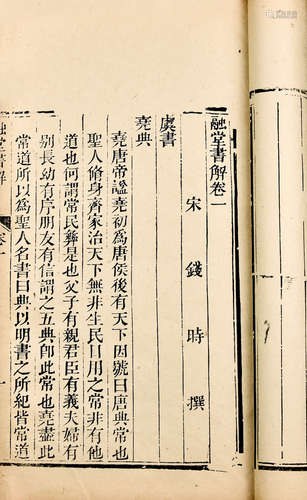 融堂書解卷一
宋錢時撰
虞書
堯典
堯唐帝諡堯初為唐侯後有天下因號曰唐典常也
聖人脩身齊家治天下無非生民日用之常非有他
道也何謂常民彝是也父子有親君臣有義夫婦有
別長幼有序朋友有信謂之五典卽此常也堯盡此
常道所以為聖人名書曰典以明書之所紀皆常道
融堂書解
卷一
一